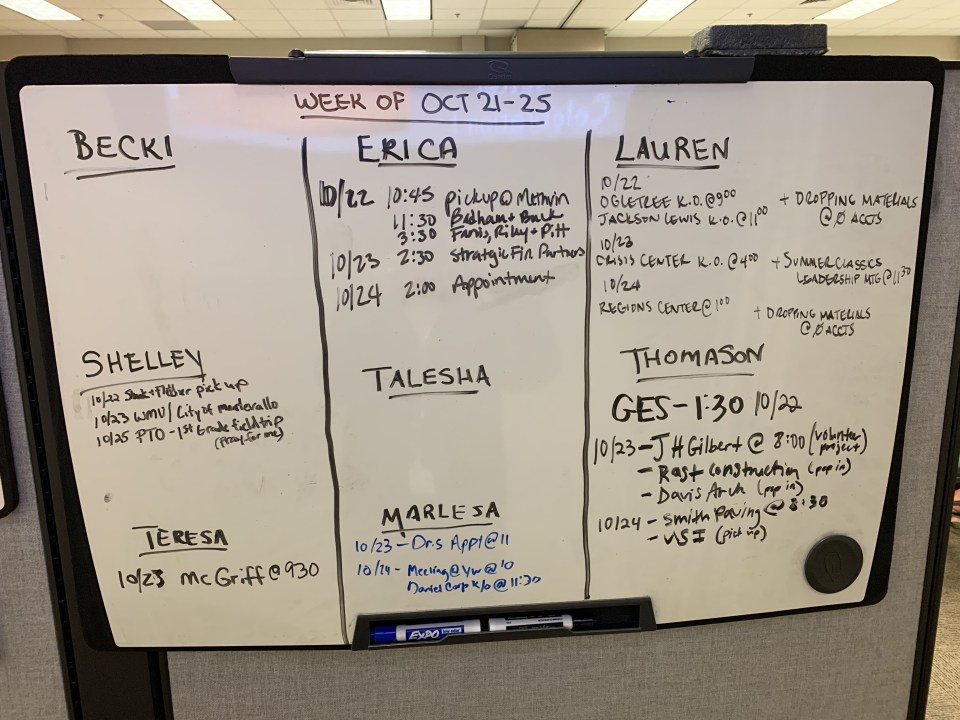 WEEK OF OCT 21-25
BECKI
ERICA
10/22 10:45 pickup @ Methvin
11:30 Badham + Buck
3:30 Faris, Riley + Pitt
10/23 2:30 Stratgic Fin Partners
10/24 2:00 Appointment
LAUREN
10/22
OGLETREE K.O. @ 9:00
JACKSON LEWIS K.O. @ 11:00
+ DROPPING MATERIALS
@ Ø ACCTS
10/23
CRISIS CENTER K.O. @ 4:00
+ SUMMER CLASSICS
LEADERSHIP MTG @ 11:30
10/24
REGIONS CENTER @ 1:00
+ DROPPING MATERIALS
@ Ø ACCTS
SHELLEY
10/22 pick up
10/23 WMU / City of montevallo
10/25 PTO - 1st Grade field trip
(Pray for me)
TALESHA
THOMASON
GES - 1:30 10/22
10/23 - JH Gilbert @ 8:00 (volunter
project)
- Rast Construction (pop in)
- Davis Arch (pop in)
10/24 - Smith Paving @ 8:30
- VSI (pick up)
TERESA
10/23 McGriff @ 930
MARLESA
10/23 - Dr.s Appt @ 11
10/24 - Meeting @ YW @ 10
Daniel Corp K/o @ 11:30
EXPO